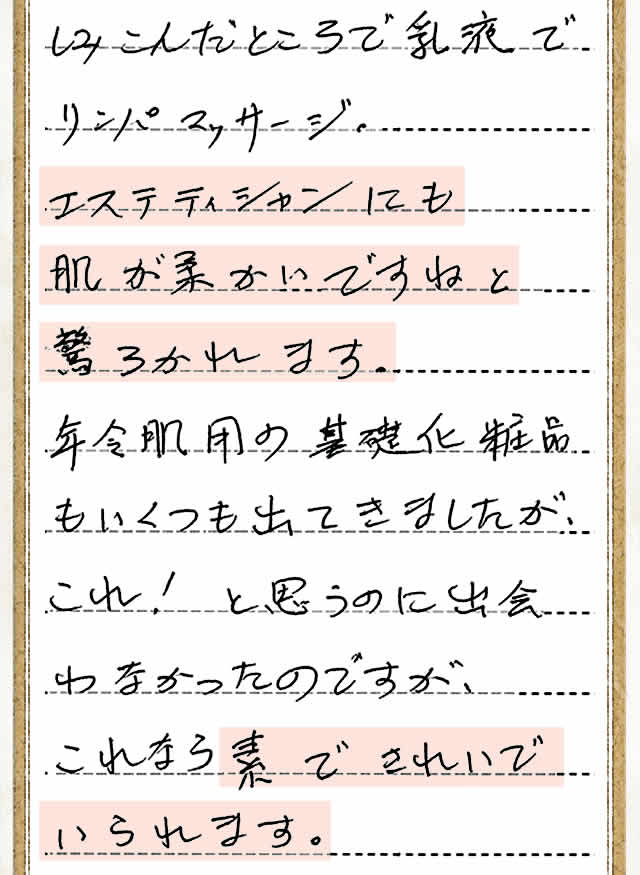 しみこんだところで乳液で
リンパマッサージ。
エステティシャンにも
肌が柔かいですねと
驚ろかれます。
年令肌用の基礎化粧品
もいくつも出てきましたが、
これ！と思うのに出会
わなかったのですが、
これなら素できれいで
いられます。